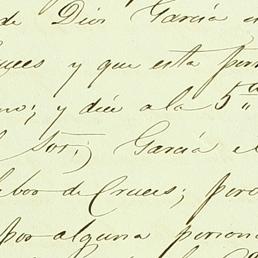 de Dios García e
ces y que esta per
no; y dice a la 5ª
l Sor; García e
labor de Cruces; por
por alguna person